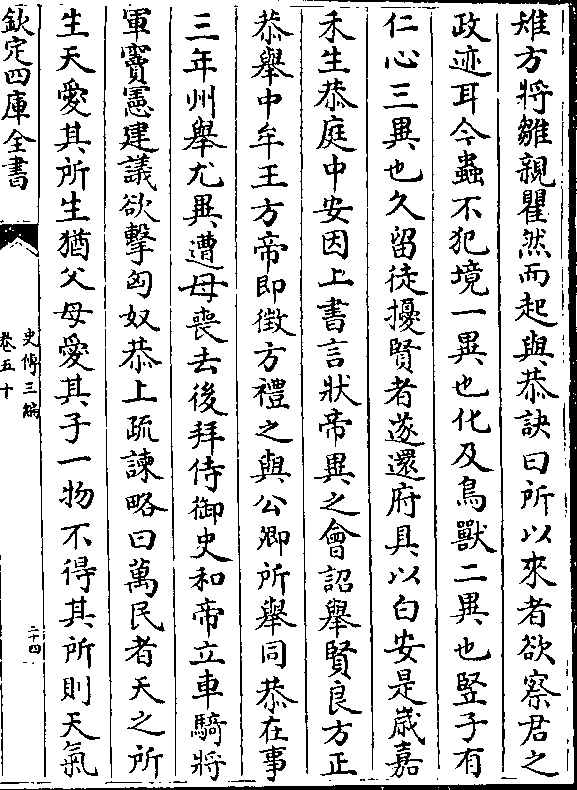 雉方將雛親瞿然而起與恭訣曰所以來者欲察君之
政迹耳今蟲不犯境一異也化及鳥獸二異也竪子有
仁心三異也久留徒擾賢者遂還府具以白安是嵗嘉
禾生恭庭中安因上書言狀帝異之會詔舉賢良方正
恭舉中牟王方帝即徵方禮之與公卿所舉同恭在事
三年州舉尤異遭母喪去後拜侍御史和帝立車騎將
軍竇憲建議欲擊匈奴恭上疏諫略曰萬民者天之所
生天愛其所生猶父母愛其子一物不得其所則天氣
欽定四庫全書
史傳三編
卷五十
二十四